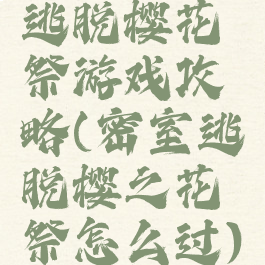 逃脱樱花
祭游戏攻
略(密室逃
脱樱之花
祭怎么过)